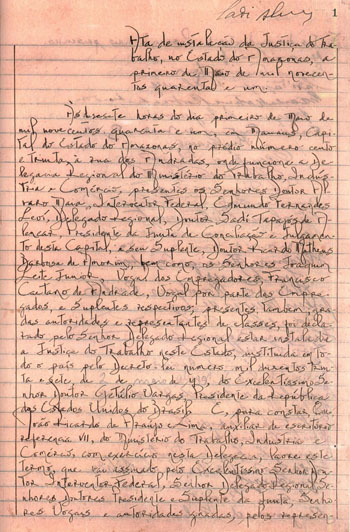 1
Ata de instalação da Justiça do Tra-
balho, no Estado do Amazonas, a
primeiro de Maio de mil novecen-
tos quarenta e um.
Ás dezesete horas do dia primeiro de Maio de
mil novecentos quarenta e um, em Manaus, Capi-
tal do Estado do Amazonas, no prédio número cento
e trinta, à rua dos Andradas, onde funciona a De-
legacia Regional do Ministério do Trabalho, Indus-
tria e Comércio, presentes os Senhores Doutor Al-
varo Maia, Interventor Federal, Edmundo Fernandes
Levi, Delegado Regional, Doutor Sadi Tapajós de A-
lencar, Presidente da Junta de Conciliação e Julgamen-
to desta Capital, e seu Suplente, Doutor Ricardo Matheus
Barbosa de Amorim, bem como, os Senhores Joaquim
Leite Junior, Vogal dos Empregadores, Francisco
Caitano de Andrade, Vogal por parte dos Empre-
gados, e Suplentes respectivos; presentes tambem,
das autoridades e representantes de classes, foi decla-
rado pelo Senhor Delegado Regional estar instalada
a Justiça do Trabalho neste Estado, instituida em to-
do o país pelo Decreto lei número mil duzentos trin-
ta e sete de 2 de 1939, do Excelentissimo Se-
nhor Doutor Getúlio Vargas, Presidente da República
dos Estados Unidos do Brasil. E, para constar, Eu,
João Ricardo de Araujo Lima, auxiliar de escritório
referencia VII, do Ministério do Trabalho, Industria e
Comércio, com exercício nesta Delegacia, lavrei este
termo, que vai assinado pelo Excelentissimo Senhor
Interventor Federal, Senhor Delegado Regional, Se-
nhores Doutores Presidente e Suplente da Junta, Senho-
res Vogais e autoridades gradas, pelos represen-